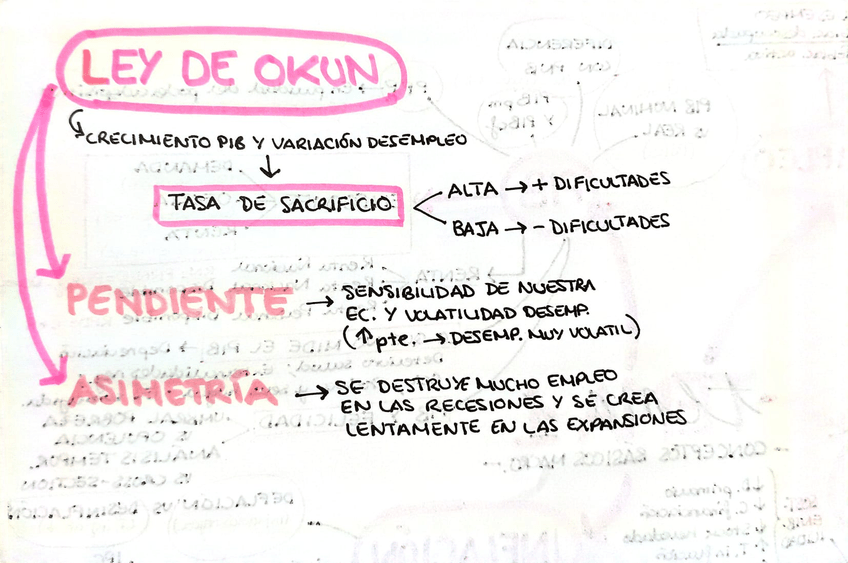 LEY DE OKUN
CRECIMIENTO PIB Y VARIACIÓN DESEMPLEO
TASA DE SACRIFICIO
ALTA → + DIFICULTADES
BAJA → - DIFICULTADES
PENDIENTE → SENSIBILIDAD DE NUESTRA
EC. Y VOLATILIDAD DESEMP.
(↑ pte. → DESEMP. MUY VOLATIL)
ASIMETRÍA → SE DESTRUYE MUCHO EMPLEO
EN LAS RECESIONES Y SE CREA
LENTAMENTE EN LAS EXPANSIONES